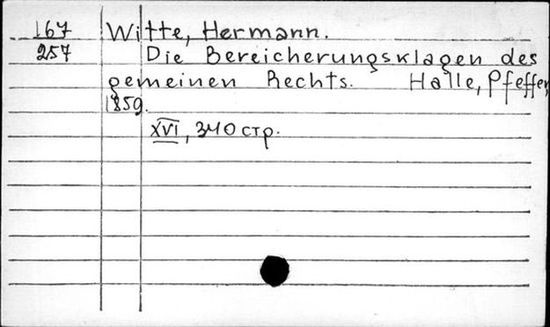 167 Witte, Hermann.
257 Die Bereicherungsklagen des
gemeinen Rechts. Halle, Pfeffer,
1859.
XVI, 340 стр.